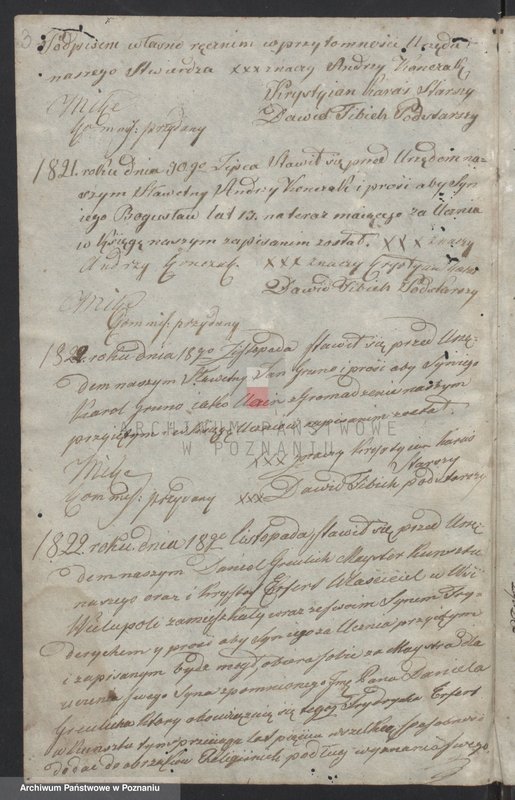 3
Podpisem własno ręcznim w przytomności Urzędu
naszego Stwirdza xxx znaczy Andrzy Konczak
Krystyian Karas Starszy
Mitke Dawid Tibich Podstarszy
Commiss: przydany
1821. roku dnia 30go Lipca Stawił się przed Urzędom na-
szym Sławetny Andrzy Konczak i prosi aby Syn
iego Bogusław lat 13. na teraz maiącego za Ucznia
w Księgę naszym zapisanim został. XXX znaczy
Andrzy Konczak. xxx znaczy Crystyan Karas
Dawid Tibich Podstarszy
Mitke
Commiss. przydany
1822 roku dnia 18go Listopada stawił się przed Urzę-
dem naszym Sławetny Jan Greno i prosi aby Syn iego
Karol Greno iako Uczn Zgromadzeniu naszym
przyiętym i w Księgę Uczniów zapisanim został.
xxx znaczy Krystyan Karas
Mitke Starszy
Commiss. przydany xxx Dawid Tibich podstarszy
1822 roku dnia 18go listopada stawił się przed Urzę-
dem naszym Daniel Greulich Mayster Kunsztu
naszego oraz i Krysztof Erfert Właściciel w Wsi
Wielupoli zamięszkały wraz ze swoim Synem Fry-
derykem y prosi aby Syn iego za Ucznia przyiętym
i zapisanym bydz mógł, obiera sobie za Maystra dla
swego Syna wspomnionego Pana Daniela
Greulicha który obowięzuie się tegoż Frydrycha Erfert
w Kunsztu tym przeciągu lat pięciu wszelką sposobność
dodac do obrządku Religiinich podług wyznania swego
ARCHIWUM PAŃSTWOWE
W POZNANIU
Archiwum Państwowe w Poznaniu